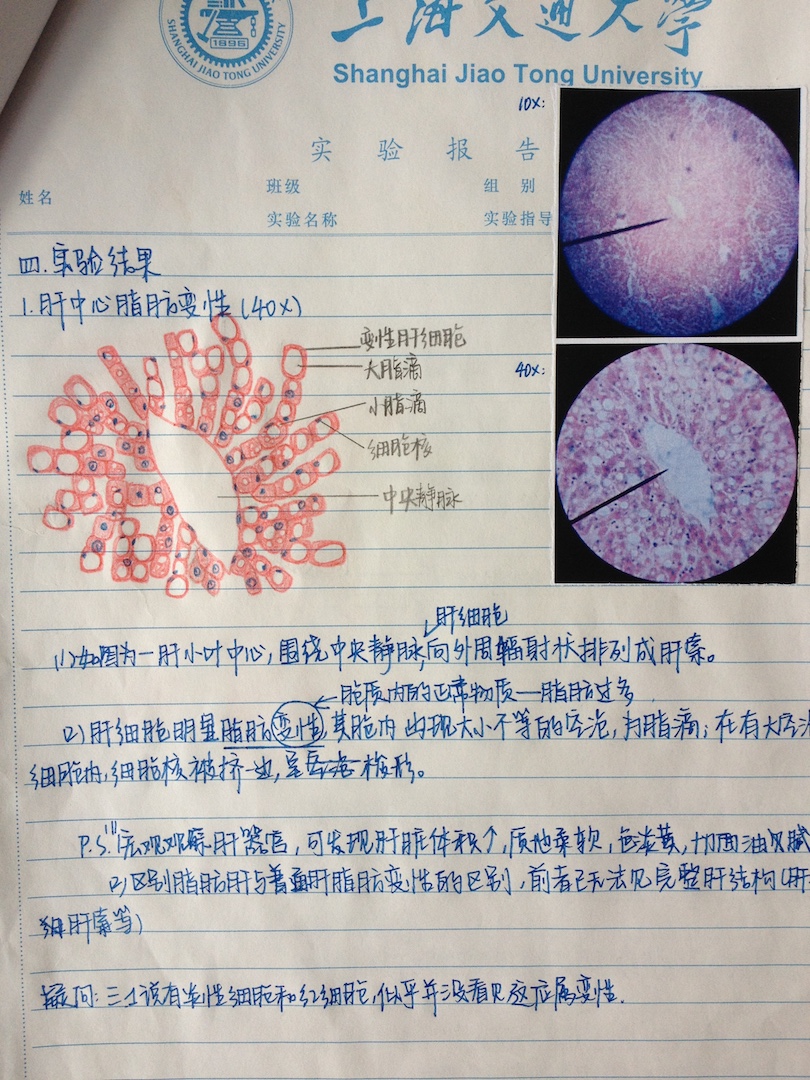 上海交通大學
SHANGHAI JIAO TONG UNIVERSITY
1896
Shanghai Jiao Tong University
10X:
实验报告
姓名 班级 组别
实验名称 实验指导
四.实验结果
1.肝中心脂肪变性(40X)
变性肝细胞
大脂滴
40X:
小脂滴
细胞核
中央静脉
肝细胞
(1)如图为一肝小叶中心,围绕中央静脉,向外周辐射状排列成肝索。
胞质内的正常物质—脂肪过多
2)肝细胞明显脂肪变性,其胞内出现大小不等的空泡,为脂滴;在有大空泡
细胞内,细胞核被挤一边,呈 梭形。
P.S.(1)宏观观察肝器官,可发现肝脏体积↑,质地柔软,色淡黄,切面油腻
2)区别脂肪肝与普通肝脂肪变性的区别,前者已无法见完整肝结构(肝
细 肝索等)
疑问: 变性细胞和红细胞,似乎并没看见 应属变性.